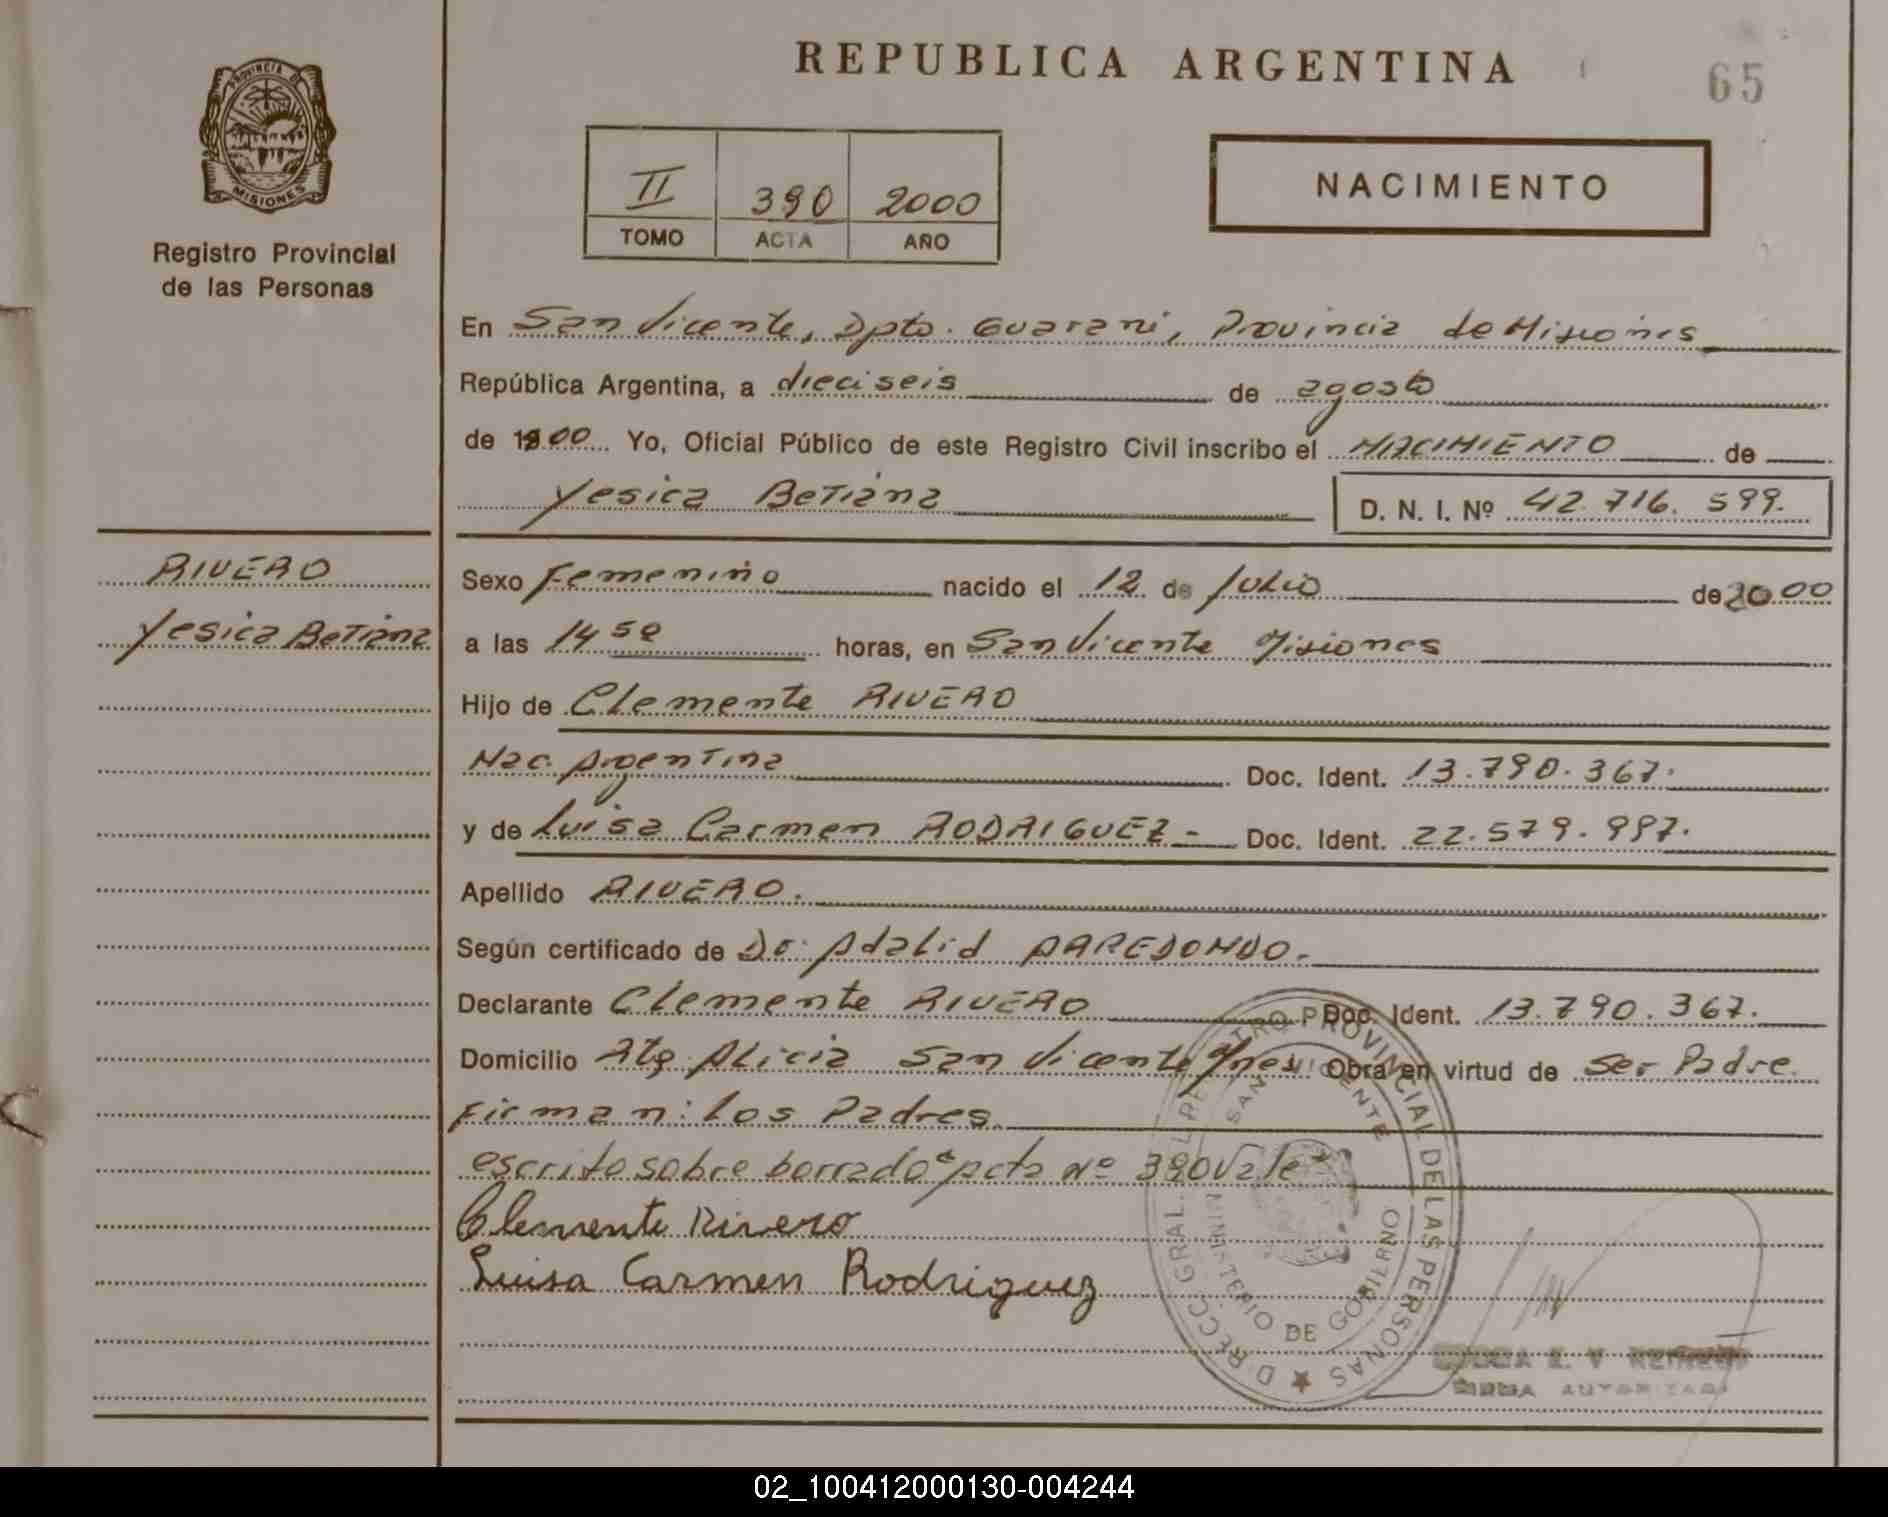 REPUBLICA ARGENTINA
65
PROVINCIA DE
MISIONES
Registro Provincial
de las Personas
II 390 2000
TOMO ACTA AÑO
NACIMIENTO
En San Vicente, Dpto. Guarani, Provincia de Misiones
República Argentina, a dieciseis de agosto
de 1900 Yo, Oficial Público de este Registro Civil inscribo el NACIMIENTO de
Yesica Betiana D. N. I. Nº 42.716.599.
RIVERO
Yesica Betiana
Sexo Femenino nacido el 12 de Julio de 2000
a las 14 50 horas, en San Vicente Misiones
Hijo de Clemente RIVERO
Nac. Argentina Doc. Ident. 13.790.367.
y de Luisa Carmen RODRIGUEZ - Doc. Ident. 22.579.997.
Apellido RIVERO.
Según certificado de Dr. Adalid ARREDONDO.
Declarante Clemente RIVERO Doc. Ident. 13.790.367.
Domicilio Alicia San Vicente Mnes. Obra en virtud de Ser Padre
Firman: Los Padres.
escrito sobre borrado "Acta Nº 390 Vale"
Clemente Rivero
Luisa Carmen Rodriguez
DIRECC. GRAL. REGISTRO PROVINCIAL DE LAS PERSONAS
SAN VICENTE
MINISTERIO DE GOBIERNO
E. V.
FIRMA AUTORIZADA
02_100412000130-004244